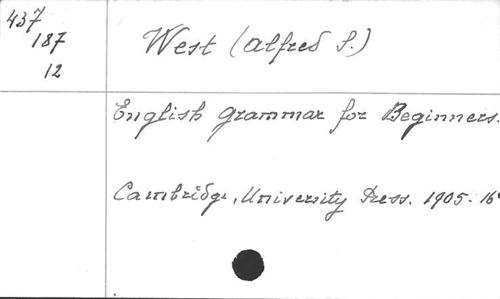 437
187
12
West (Alfred S.)
English Grammar for Beginners.
Cambridge, University Press. 1905. 16°